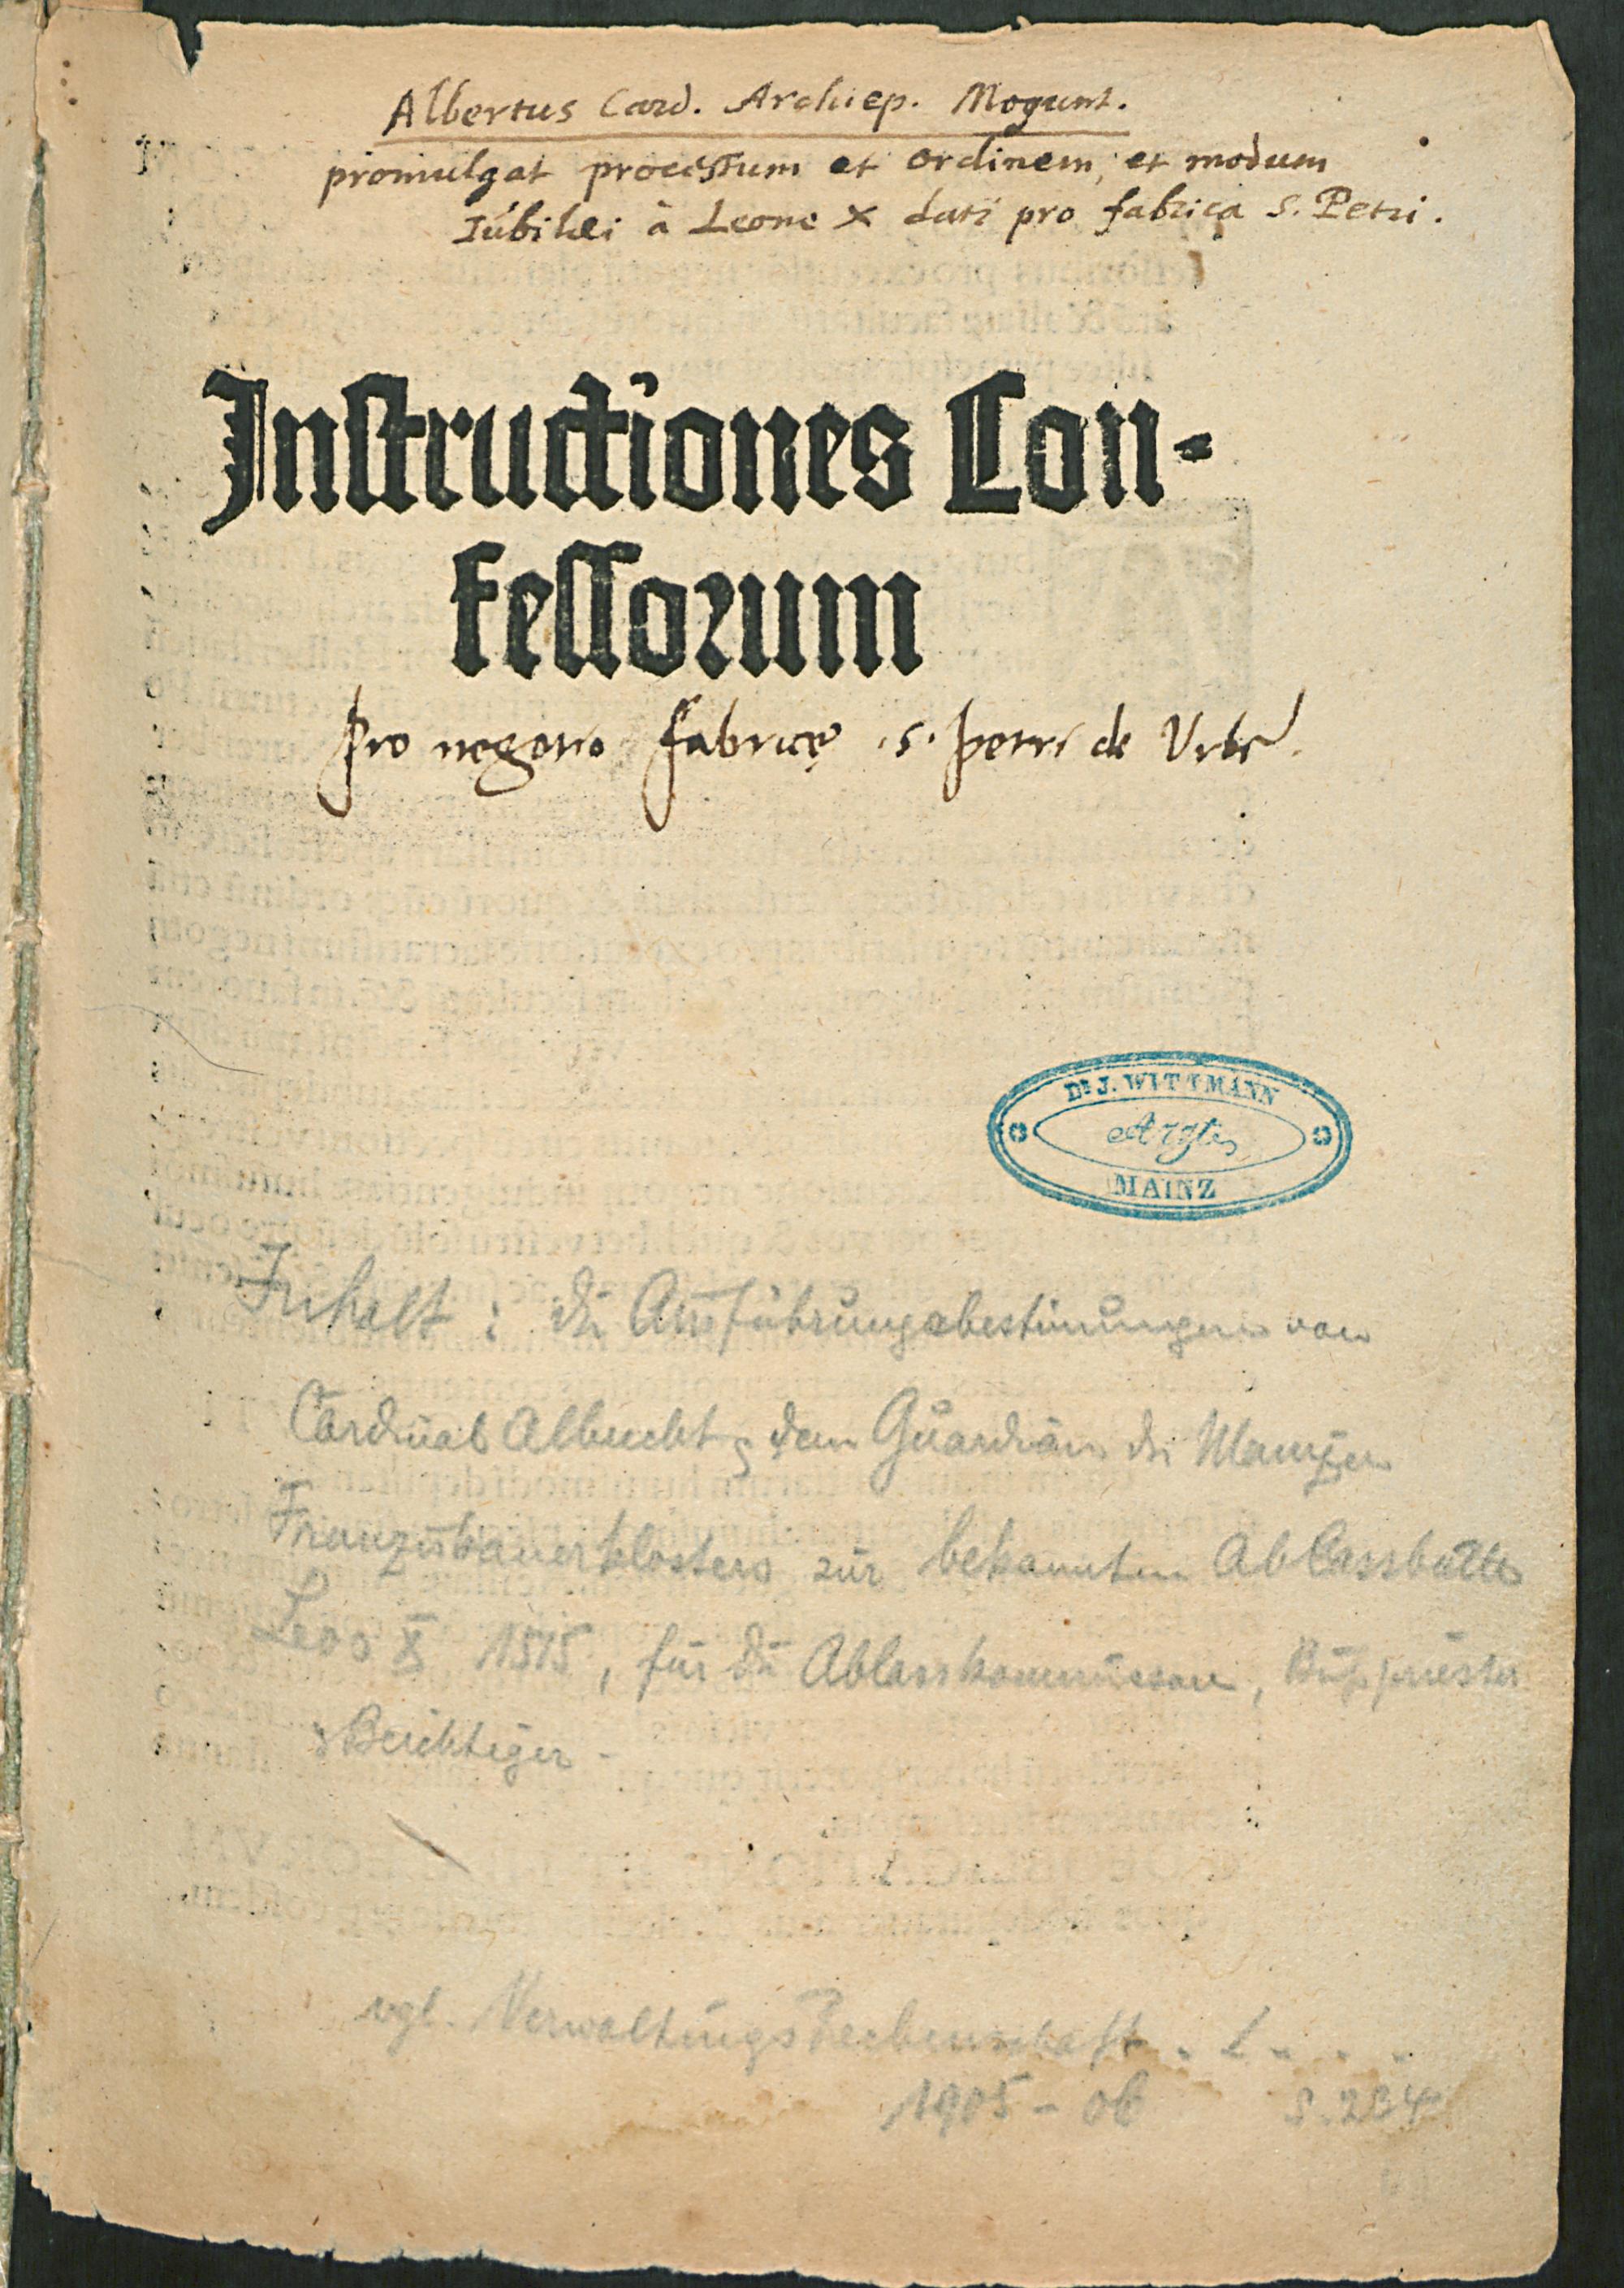 Albertus Card. Archiep. Mogunt.
promulgat processum et ordinem, et modum
Iúbilæi à Leone X dati pro fabrica S. Petri.
Instructiones Con-
fessorum
pro negotio fabricę .S. petri de Urbe.
Dr. J. WITTMANN
Arzt
MAINZ
Inhalt: die Ausführungsbestimmungen von
Cardinal Albrecht, dem Guardian des Mainzer
Franziskanerklosters zur bekannten Ablassbulle
Leos X 1515, für die Ablasskommissare, Bußpriester
Beichtiger
vgl. Verwaltungs Rechenschaft
1905-06 S. 234